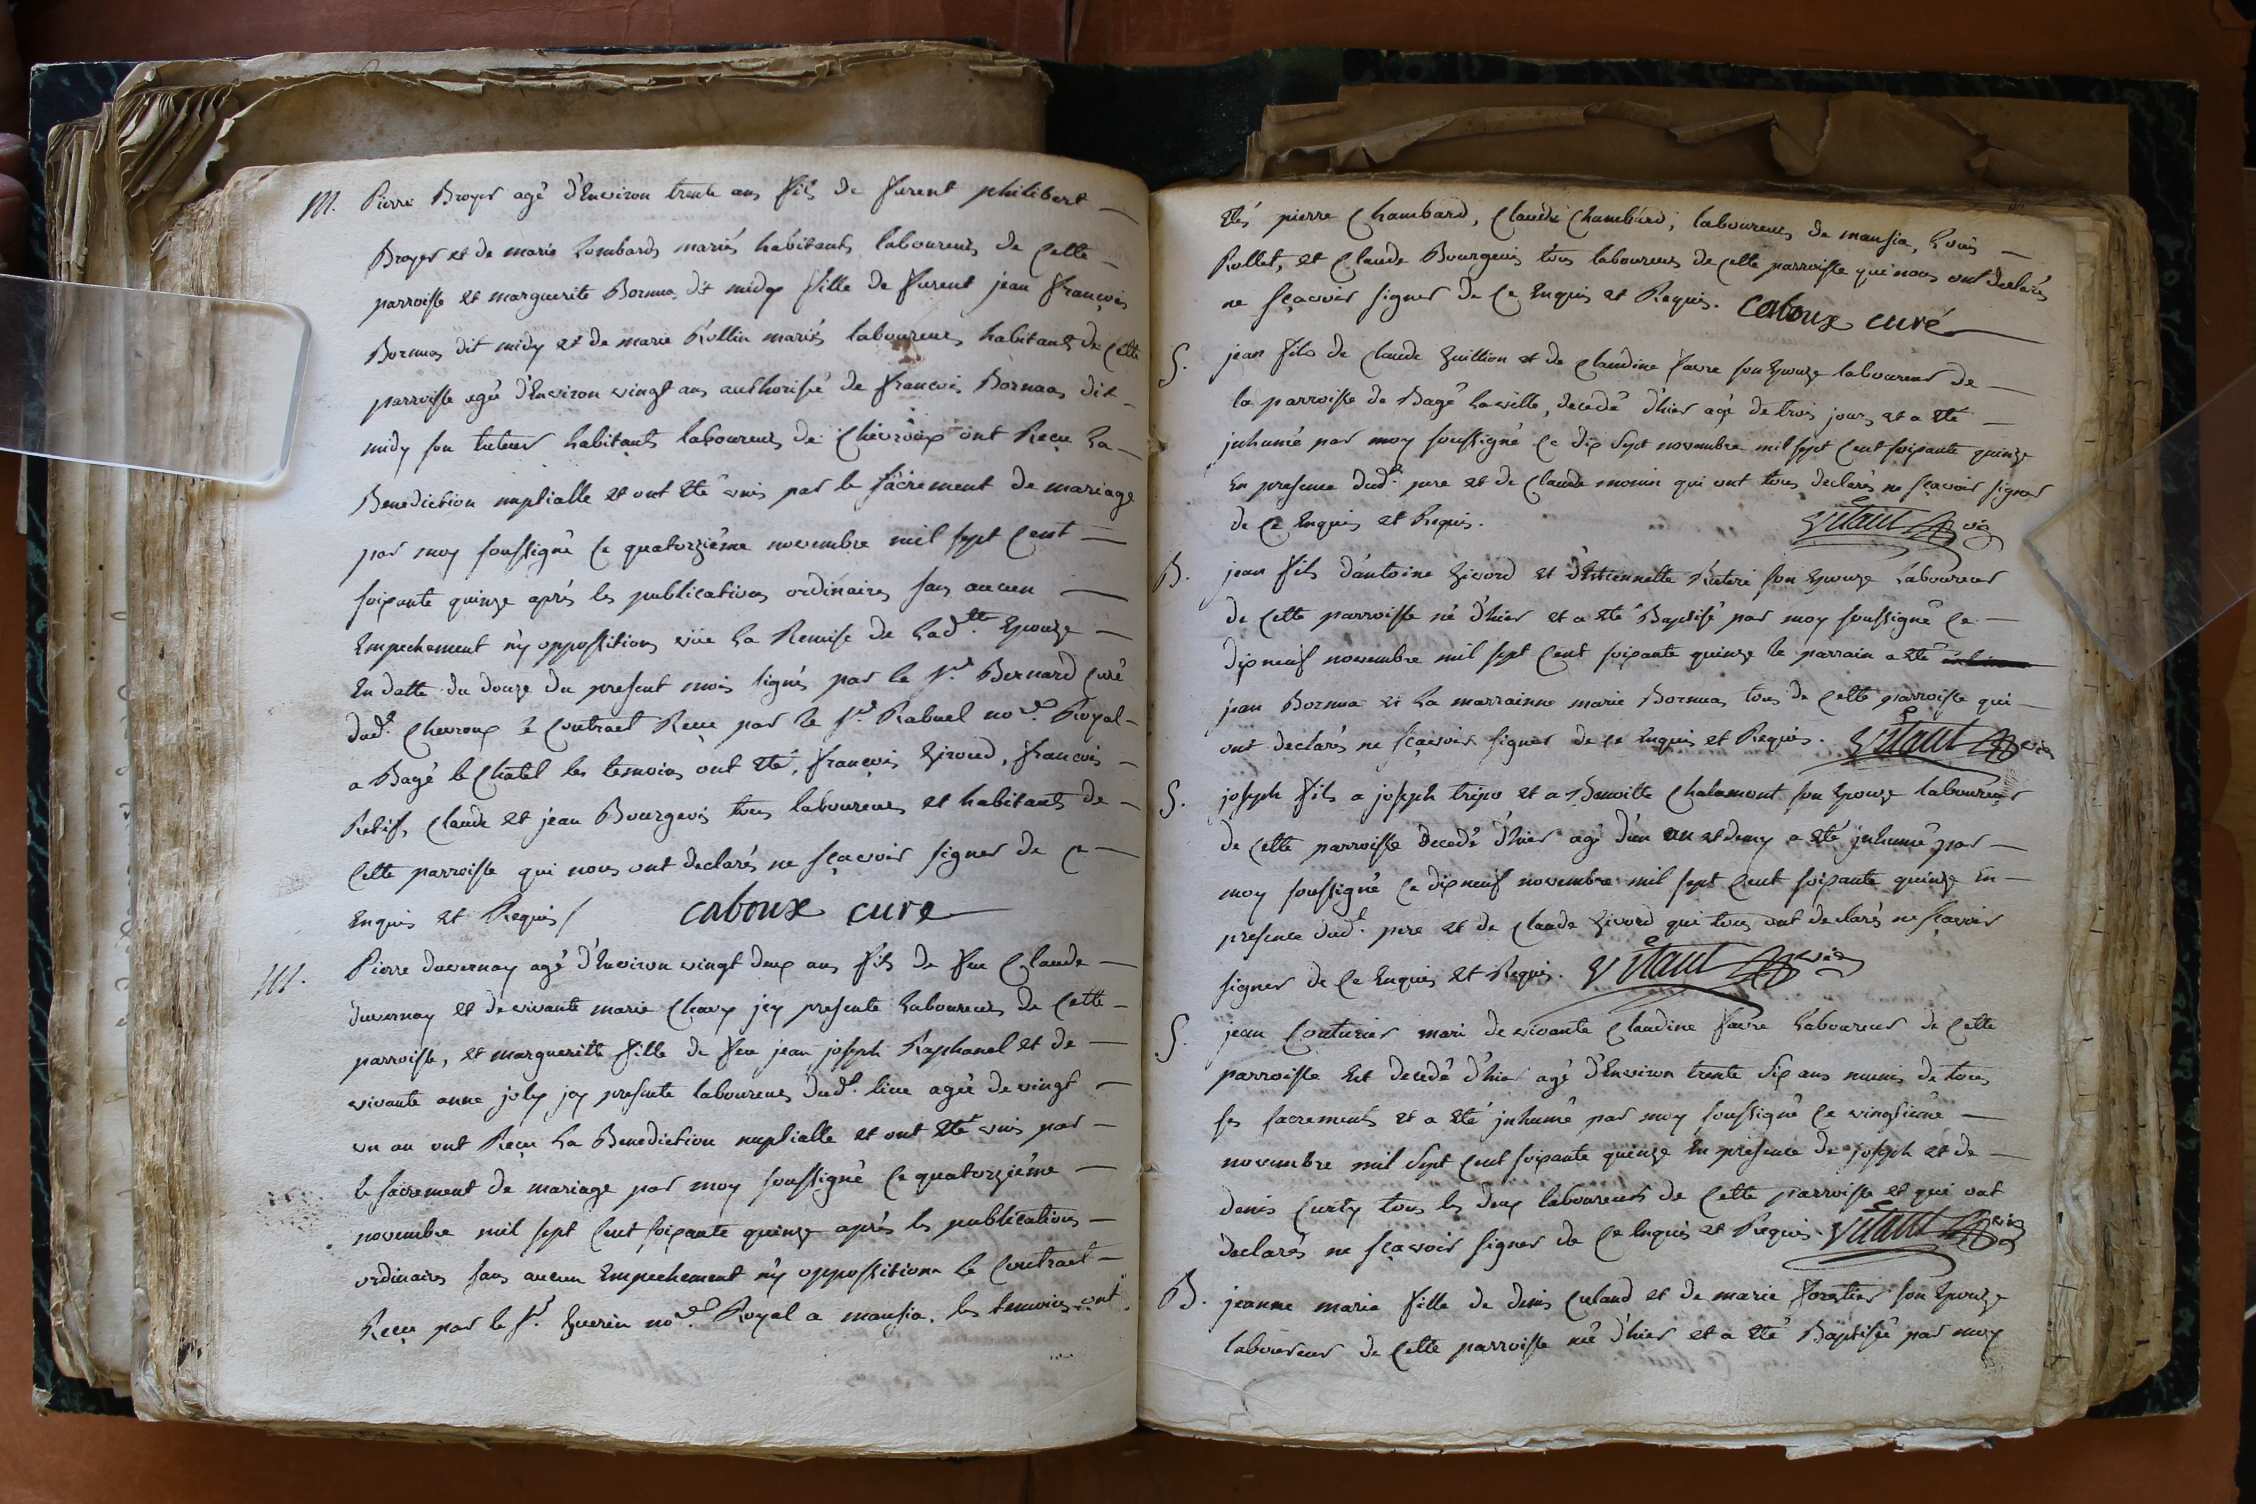 M. Pierre Broyer agé d'Environ trente ans fils de furent philibert
Broyer et de marie Lombard mariés habitants laboureurs de Cette
parroisse et marguerite Bornua dit midy fille de furent jean françois
Bornuas dit midy et de marie Rollin mariés laboureurs habitants de Cette
parroisse agée d'Environ vingt ans authorisée de francois Bornuas dit
midy son tuteur habitants laboureurs de Chevroux ont Reçu La
Benediction nuptialle et ont Eté unis par le sacrement de mariage
par moy soussigné Ce quatorzième novembre mil sept Cent
soixante quinze après les publications ordinaires sans aucun
Empechement n'y oppossition vüe La Remise de Lad.tte Epouze
En datte du douze du present mois signés par le Sr. Bernard Curé
dud.t Chevroux le Contract Reçu par le Sr. Rabuel nore. Royal
a Bagé le Chatel les temoins ont Eté, françois Giroud, francois
Retif, Claude et jean Bourgeois tous laboureurs et habitants de
Cette parroisse qui nous ont declarés ne sçavoir signer de Ce
Enquis et Requis / caboux curé
M. Pierre duvernay agé d'Environ vingt deux ans fils de feu Claude
duvernay et de vivante marie Chavy jcy presente Laboureurs de Cette
parroisse, et marguerite fille de feu jean joseph Raphanel et de
vivante anne joly jcy presente laboureurs dud.t lieu agée de vingt
un an ont Reçu La Benediction nuptialle et ont Eté unis par
le sacrement de mariage par moy soussigné Ce quatorzième
novembre mil sept Cent soixante quinze après les publications
ordinaires sans aucun Empechement n'y oppossition le Contract
Reçu par le Sr. Guerin nore. Royal a mansia. les temoins ont
Etés pierre Chambard, Claude Chambard, laboureurs de mansia, Louis
Rollet, et Claude Bourgeois tous laboureurs de Cette parroisse qui nous ont declarés
ne sçavoir signer de Ce Enquis et Requis. caboux curé
S. jean fils de Claude Guillion et de Claudine favre son Epouze laboureur de
la parroisse de Bagé Laville, decedé d'hier agé de trois jours et a Eté
jnhumé par moy soussigné Ce dix sept novembre mil sept Cent soixante quinze
En presence dud.t pere et de Claude monin qui ont tous declarés ne sçavoir signer
de Ce Enquis et Requis. Vitaut vic
B. jean fils d'antoine Givord et d'Estiennette son Epouze Laboureur
de Cette parroisse né d'hier et a Eté Baptisé par moy soussigné Ce
dix neuf novembre mil sept Cent soixante quinze le parrain a Eté
jean Bornua et La marrainne marie Bornuas tous de Cette parroisse qui
ont declarés ne sçavoir signer de Ce Enquis et Requis. Vitaut vic
S. joseph fils a joseph tripo et a Benoitte Chalamont son Epouze laboureur
de Cette parroisse decedé d'hier agé d'un an et demy a Eté jnhumé par
moy soussigné Ce dix neuf novembre mil sept Cent soixante quinze En
presence dud.t pere et de Claude Givord qui tous ont declarés ne sçavoir
signer de Ce Enquis et Requis. Vitaut vic
S. jean Couturier mari de vivante Claudine favre Laboureur de Cette
parroisse Est decedé d'hier agé d'Environ trente six ans munis de tous
ses sacrements et a Eté jnhumé par moy soussigné Ce vingtième
novembre mil sept Cent soixante quinze En presence de joseph et de
denis Curty tous les deux laboureurs de Cette parroisse et qui ont
declarés ne sçavoir signer de Ce Enquis et Requis. Vitaut vic
B. jeanne marie fille de denis Culand et de marie forestier son Epouze
laboureur de Cette parroisse née d'hier et a Eté Baptisée par moy